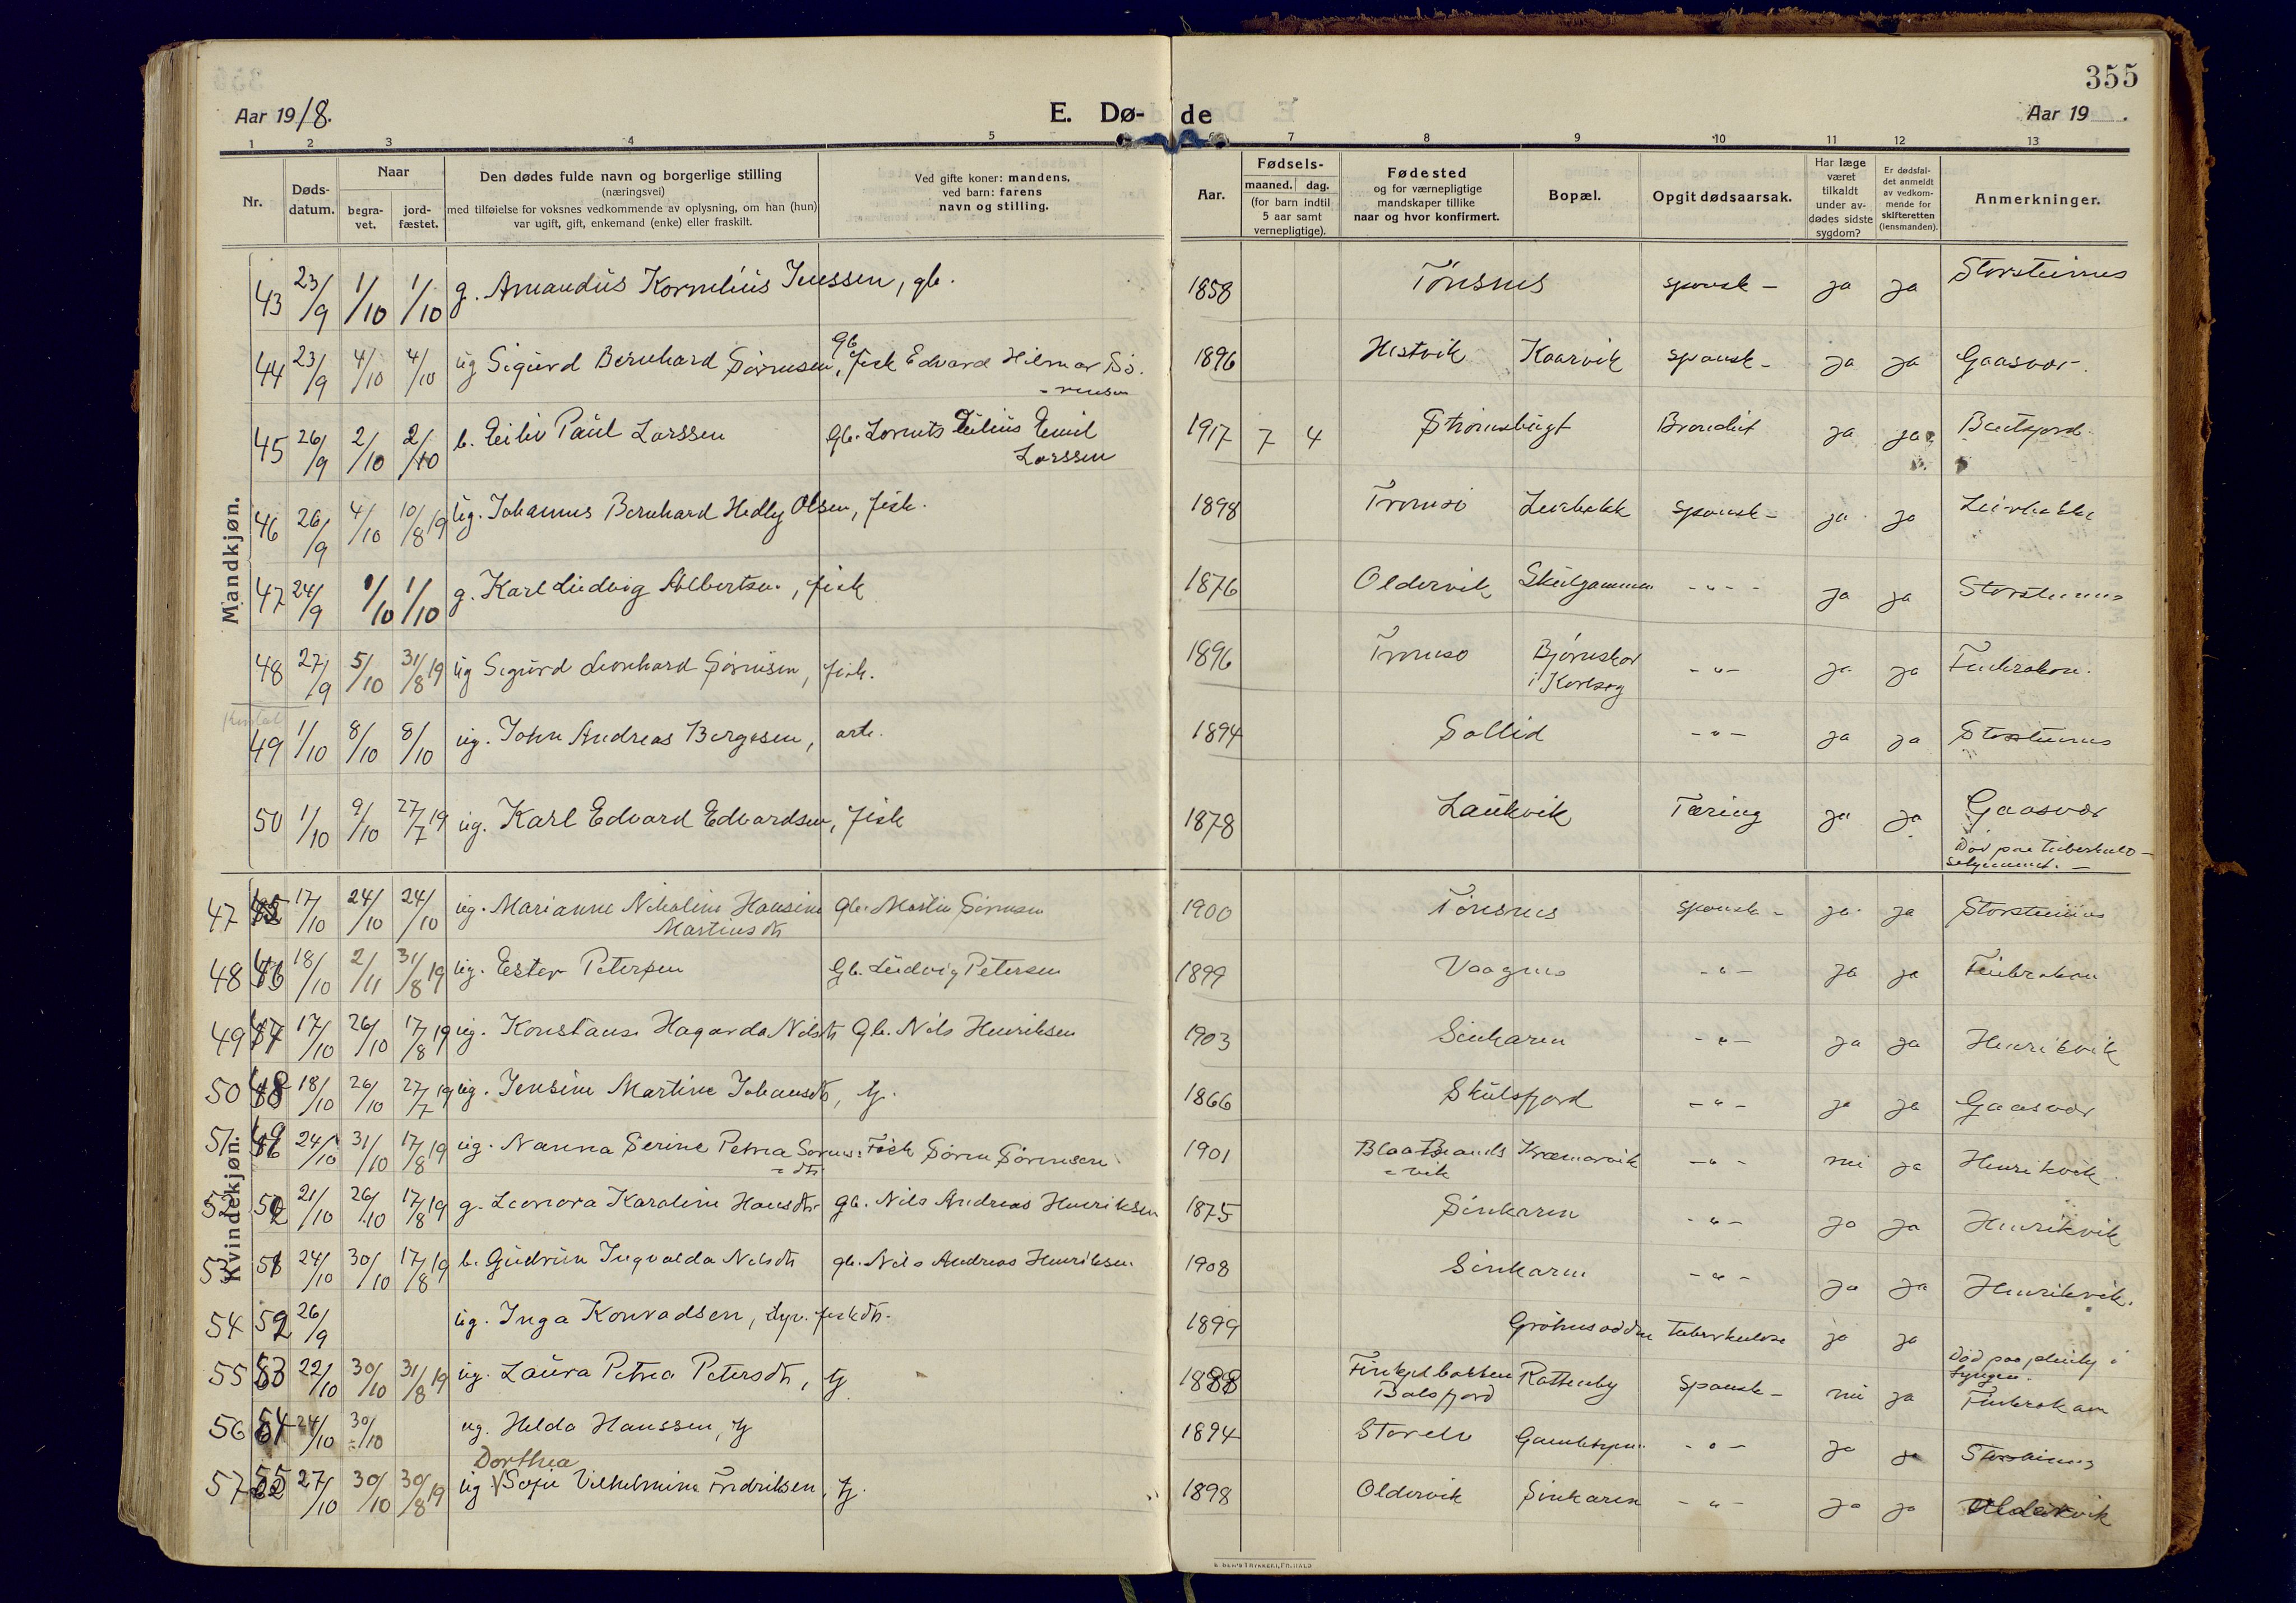 355
Aar 1918.
E. Dø-
de
Aar 19 .
1 2 3 4 5 6 7 8 9 10 11 12 13
Nr.
Døds-
datum.
Naar
begra-
vet.
jord-
fæstet.
Den dødes fulde navn og borgerlige stilling
(næringsvei)
med tilføielse for voksnes vedkommende av oplysning, om han (hun)
var ugift, gift, enkemand (enke) eller fraskilt.
Ved gifte koner: mandens,
ved barn: farens
navn og stilling.
Aar.
Fødsels-
maaned. dag.
(for barn indtil
5 aar samt
vernepligtige).
Fødested
og for værnepligtige
mandskaper tillike
naar og hvor konfirmert.
Bopæl.
Opgit dødsaarsak.
Har læge
været
tilkaldt
under av-
dødes sidste
sygdom?
Er dødsfal-
det anmeldt
av vedkom-
mende for
skifteretten
(lensmanden).
Anmerkninger.
Mandkjøn.
43 23/9 1/10 1/10 g. Amandus Kornelius Jenssen, gb. 1858 Tønsnes spansk - ja ja Storsteinnes
44 23/9 4/10 4/10 ug Sigurd Bernhard Sørensen, gb fisk Edvard Hilmar Sø- 1896 Kaarvik spansk - ja ja Gaasvær.
- rensen
45 26/9 2/10 2/10 b. Eiliv Paul Larssen gb. Lornts Emil 1917 7 4 Strømsbugt ja ja
Larssen
46 26/9 4/10 10/8 19 ug. Johannes Bernhard Hedly Olsen, fisk. 1898 Tromsø spansk - ja ja
47 24/9 1/10 1/10 g. Karl Ludvig Albertsen, fisk 1876 Oldervik Skulgammen - " - ja ja Storsteinnes
48 27/9 5/10 31/8 19 ug Sigurd Leonhard Sørensen, fisk. 1896 Tromsø Bjørnskar - " - ja ja Finkroken.
i Karlsøy
49 1/10 8/10 8/10 ug. John Andreas Bergesen, arb. 1894 Sollid - " - ja ja Storsteinnes
50 1/10 9/10 27/7 19 ug. Karl Edvard Edvardsen, fisk 1878 Laukvik Tæring ja ja Gaasvær
Død paa tuberkulo-
Kvindekjøn.
47 17/10 24/10 24/10 ug. Marianne Nikoline Hansine gb. Martin Sørensen 1900 Tønsnes spansk - ja ja Storsteinnes
Martinsdtr
48 46 18/10 2/11 31/8 19 ug. Ester Petersen gb. Ludvig Petersen 1899 Vaagnes - " - ja ja Finkroken
49 47 17/10 26/10 17/8 19 ug. Konstanse Hagarda Nilsdtr gb. Nils Henriksen 1903 Sinkaren - " - ja ja Henrikvik
50 48 18/10 26/10 27/7 19 ug. Jensine Martine Johansdtr, tj. 1866 Skulsfjord - " - ja ja Gaasvær
51 49 24/10 31/10 17/8 19 ug. Nanna Serine Petrea Sørens- Fisk Søren Sørensen 1901 Blaatbrands Kræmarvik - " - nei ja Henrikvik.
- dtr - vik
52 50 21/10 26/10 17/8 19 g. Leonora Karoline Hansdtr gb. Nils Andreas Henriksen 1875 Sinkaren - " - ja ja Henrikvik
53 51 24/10 30/10 17/8 19 b. Gudrun Ingvalda Nilsdtr gb. Nils Andreas Henriksen 1908 Sinkaren - " - ja ja Henrikvik.
54 52 26/9 ug. Inga Konradsen, fiskdtr. 1899 tuberkulose ja ja
Død paa pleiehj i
Lyngen.
55 53 22/10 30/10 31/8 19 ug. Laura Petrea Petersdtr, tj 1888 Rottenby spansk - nei ja Finkroken
Balsfjord
56 54 24/10 30/10 ug. Helda Hanssen, tj 1894 Storelv - " - ja ja
Dorthea
57 55 27/10 30/10 30/8 19 ug Sofie Vilhelmine Fredriksen, tj. 1898 Oldervik Sinkaren - " - ja ja Oldervik